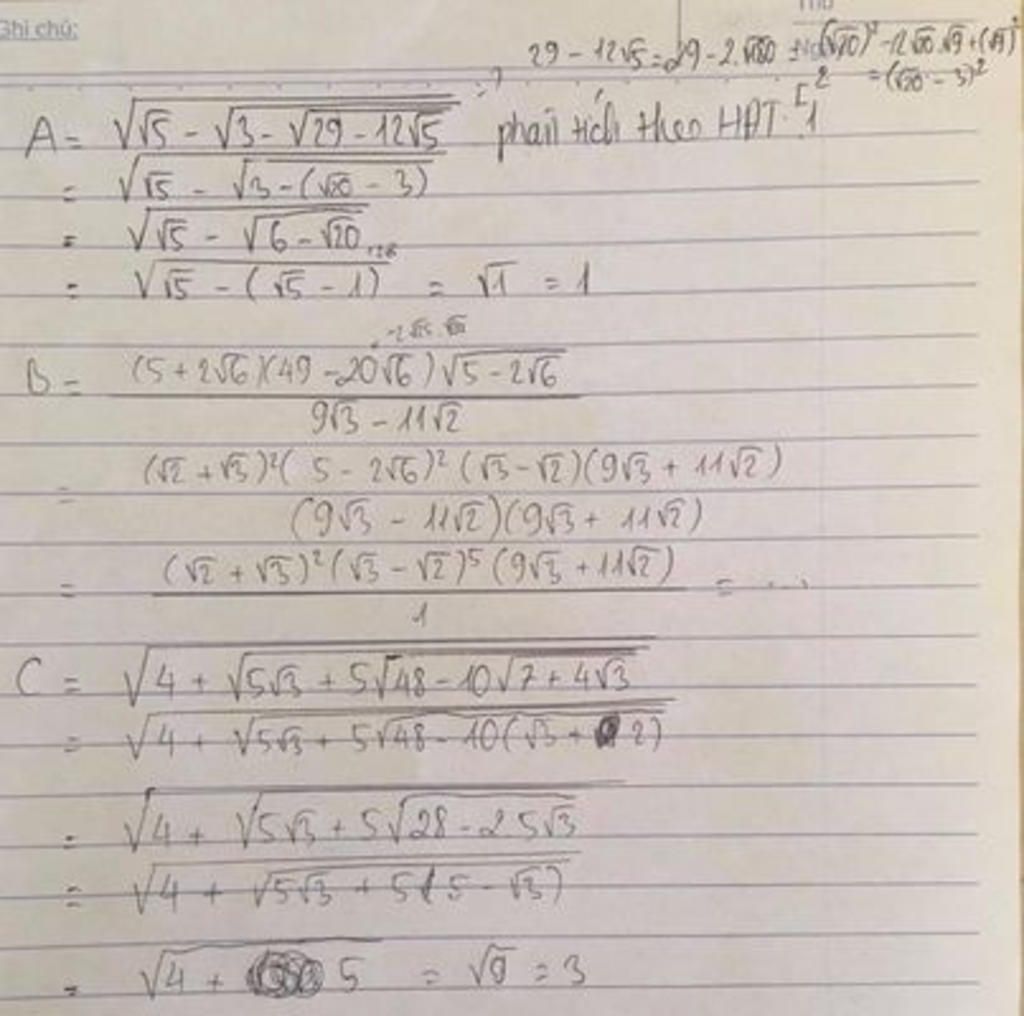 Ghi chú:
29 - 12√5 = 29 - 2.√180 = (√20)² - 2√20.√9 + (√9)²
= (√20 - 3)²
A = √(√5 - √(3 - √(29 - 12√5))) phân tích theo HĐT
= √(√5 - √(3 - (√20 - 3)))
= √(√5 - √(6 - √20))
= √(√5 - (√5 - 1)) = √1 = 1
B = (5 + 2√6)(49 - 20√6)√(5 - 2√6)
9√3 - 11√2
= (√2 + √3)²(5 - 2√6)²(√3 - √2)(9√3 + 11√2)
(9√3 - 11√2)(9√3 + 11√2)
= (√2 + √3)²(√3 - √2)⁵(9√3 + 11√2) = ....
1
C = √(4 + √(5√3 + 5√(48 - 10√(7 + 4√3))))
= √(4 + √(5√3 + 5√(48 - 10(√3 + 2))))
= √(4 + √(5√3 + 5√(28 - 25√3)))
= √(4 + √(5√3 + 5(5 - √3)))
= √(4 + 5) = √9 = 3